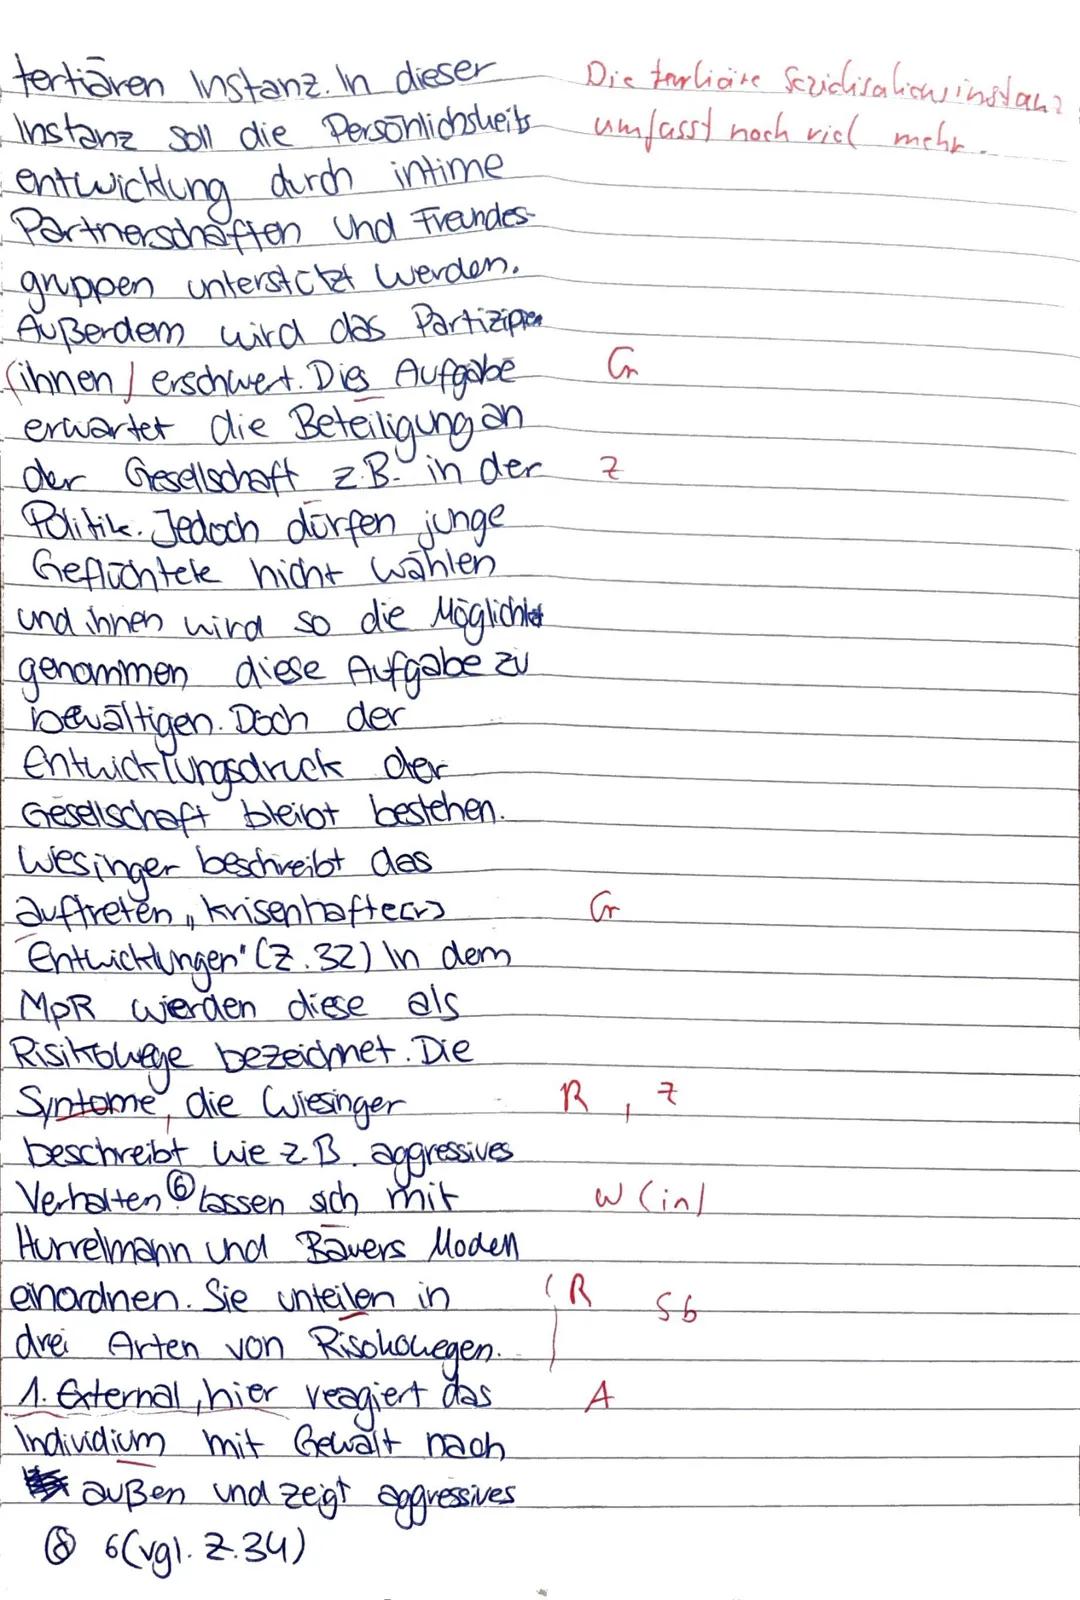 tertiären Instanz. In dieser
Die tertiäre Sozialisationsinstanz
Instanz soll die Persönlichkeits
umfasst noch viel mehr.
entwicklung durch intime
Partnerschaften und Freundes-
gruppen unterstützt werden.
Außerdem wird das Partizipieren
(ihnen) erschwert. Dies Aufgabe Gr
erwartet die Beteiligung an
der Gesellschaft z.B. in der Z
Politik. Jedoch dürfen junge
Geflüchtete nicht wählen
und ihnen wird so die Möglichkeit
genommen diese Aufgabe zu
bewältigen. Doch der
Entwicklungsdruck der
Gesellschaft bleibt bestehen.
Wiesinger beschreibt das
auftreten „krisenhafte(r) Gr
Entwicklungen" (Z.32) In dem
MpR werden diese als
Risikowege bezeichnet. Die
Syntome, die Wiesinger R, Z
beschreibt wie z.B. aggressives
Verhalten ⑥ lassen sich mit W (in)
Hurrelmann und Bauers Modell
einordnen. Sie unteilen in (R Sb
drei Arten von Risokowegen.
1. External, hier reagiert das A
Individium mit Gewalt nach
außen und zeigt aggressives
6(vgl. Z.34)